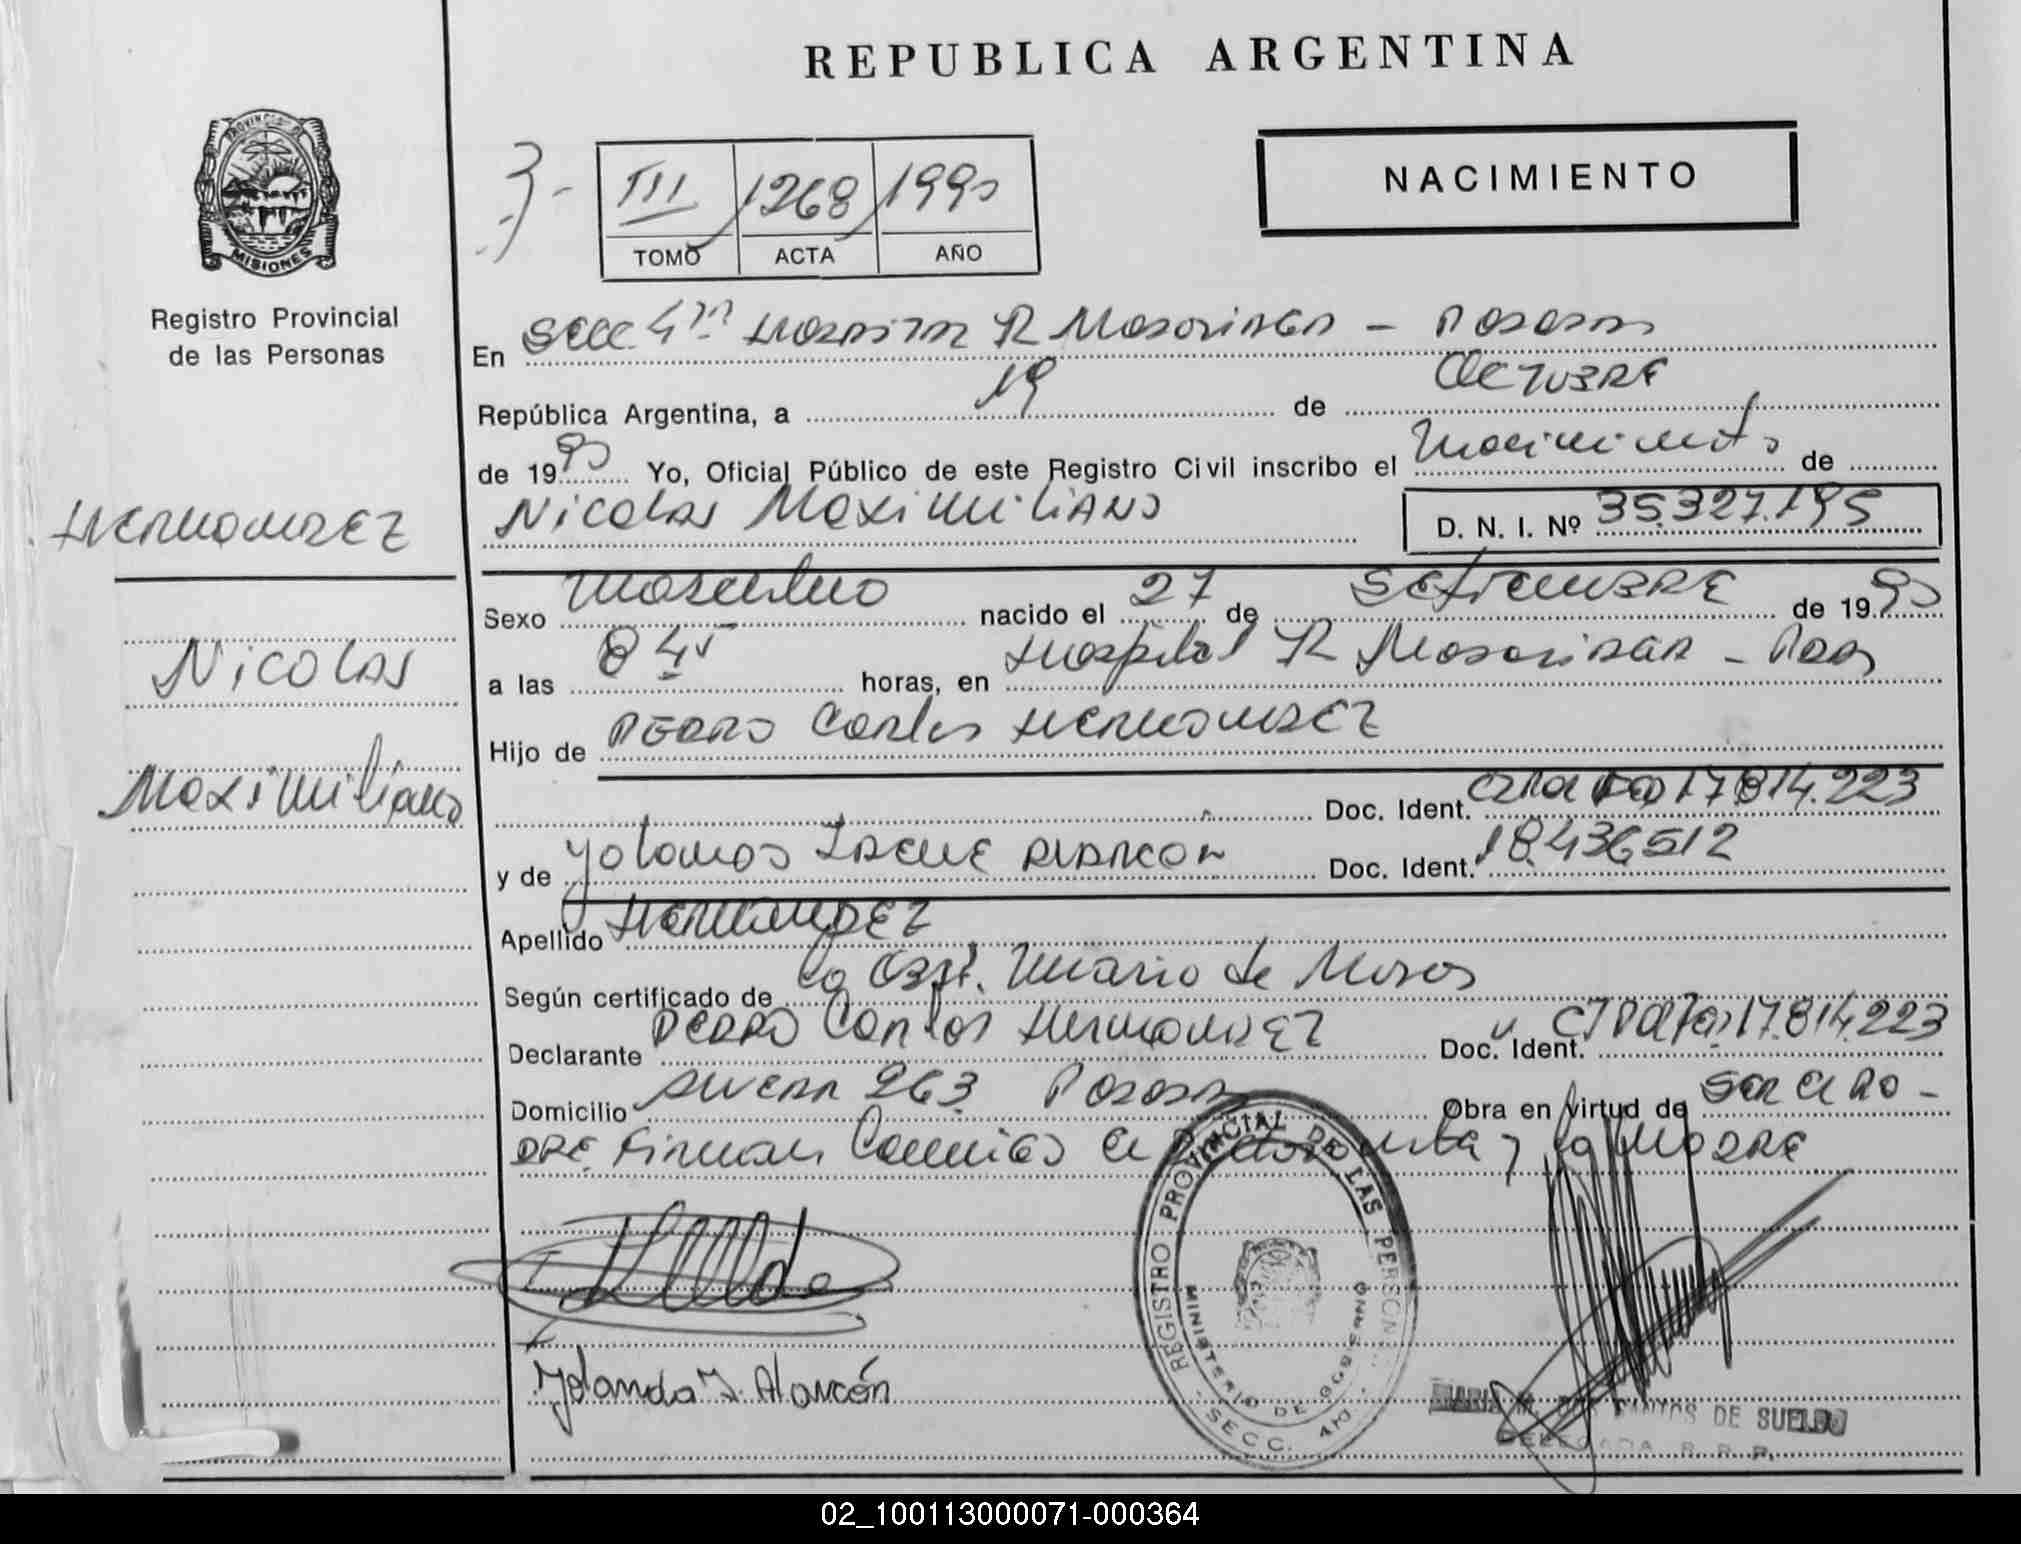 REPUBLICA ARGENTINA
PROVINCIA DE
MISIONES
Registro Provincial
de las Personas
3-
III 1268 1990
TOMO ACTA AÑO
NACIMIENTO
En Secc 4ta Hospital R Madariaga - Posadas
República Argentina, a 19 de Octubre
de 1990 Yo, Oficial Público de este Registro Civil inscribo el nacimiento de
Nicolas Maximiliano D. N. I. Nº 35.327.195
Hernandez
Sexo masculino nacido el 27 de Setiembre de 1990
Nicolas
a las 8 45 horas, en Hospital R Madariaga - Pdas
Hijo de Pedro Carlos Hernandez
Maximiliano
Doc. Ident. 17.814.223
y de Yolanda Irene Alarcon Doc. Ident. 18.436.512
Apellido Hernandez
Según certificado de la Obst. Maria de
Declarante Pedro Carlos Hernandez Doc. Ident. 17.814.223
Domicilio 263 Posadas Obra en virtud de ser el Pa-
dre Firman Conmigo el Declarante y la Madre
Yolanda I. Alarcón
REGISTRO PROVINCIAL DE LAS PERSONAS
MINISTERIO DE GOBIERNO
SECC. 4TA
MARIA M. DOS SANTOS DE SUELDO
DELEGADA R. P. P.
02_100113000071-000364